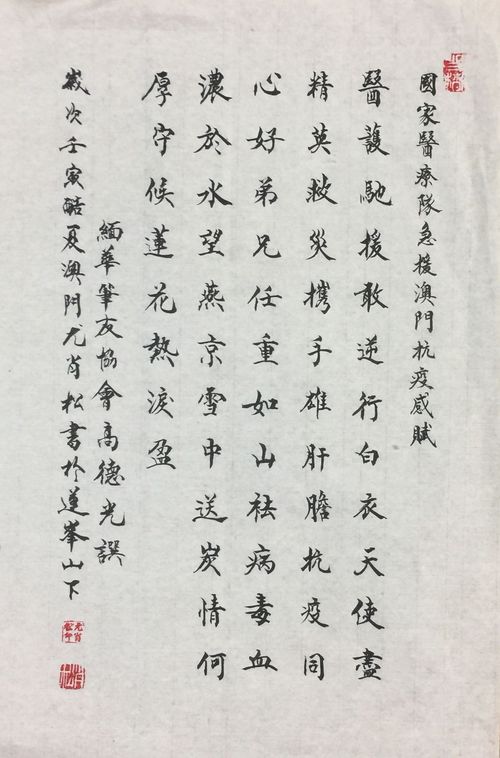 國家醫療隊急援澳門抗疫感賦
醫護馳援敢逆行白衣天使盡
精英救災攜手雄肝膽抗疫同
心好弟兄任重如山祛病毒血
濃於水望燕京雪中送炭情何
厚守候蓮花熱淚盈
緬華筆友協會高德光譔
歲次壬寅酷夏澳門尤肖松書於蓮峯山下